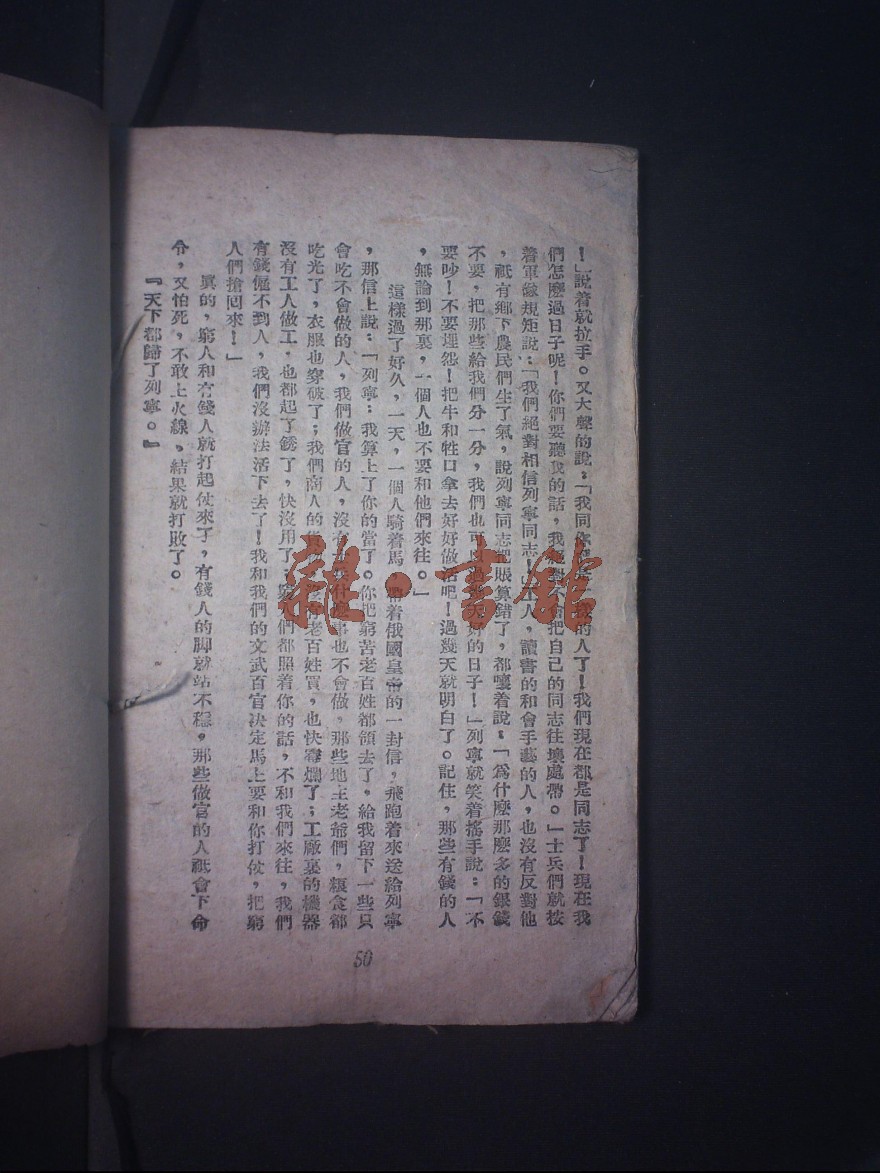 ！」說着就拉手。又大聲的說：「我同你 的人了！我們現在都是同志了！現在我
們怎麼過日子呢！你們要聽我的話，我 把自己的同志往壞處帶。」士兵們就按
着軍隊規矩說：「我們絕對相信列寧同志！」 人，讀書的和會手藝的人，也沒有反對他
，祇有鄉下農民們生了氣，說列寧同志把賬算錯了，都嚷着說：「爲什麼那麼多的銀錢
不要，把那些給我們分一分，我們也可 好的日子！」列寧就笑着搖手說：「不
要吵！不要埋怨！把牛和牲口拿去好好做活吧！過幾天就明白了。記住，那些有錢的人
，無論到那裏，一個人也不要和他們來往。」
這樣過了好久，一天，一個人騎着馬， 着俄國皇帝的一封信，飛跑着來送給列寧
，那信上說：「列寧：我算上了你的當了。你把窮苦老百姓都領去了，給我留下一些只
會吃不會做的人，我們做官的人，沒有 什麼事也不會做，那些地主老爺們，糧食都
吃光了，衣服也穿破了；我們商人的貨物， 老百姓買，也快霉爛了；工廠裏的機器
沒有工人做工，也都起了銹了，快沒用了；窮人們都照着你的話，不和我們來往，我們
有錢僱不到人，我們沒辦法活下去了！我和我們的文武百官決定馬上要和你打仗，把窮
人們搶回來！」
眞的，窮人和有錢人就打起仗來了，有錢人的脚就站不穩，那些做官的人祇會下命
令，又怕死，不敢上火線，結果就打敗了。
『天下都歸了列寧。』
50
雜·書館